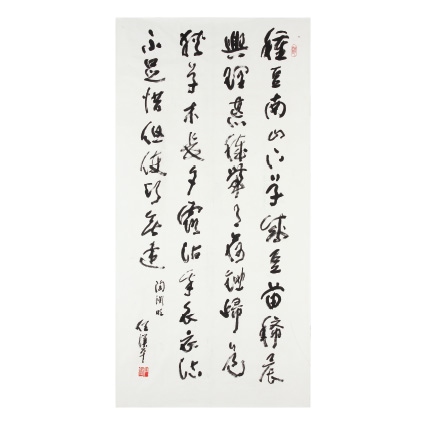 種豆南山下草盛豆苗稀晨
興理荒穢帶月荷鋤歸道
狹草木長夕露沾我衣衣沾
不足惜但使願無違
陶淵明